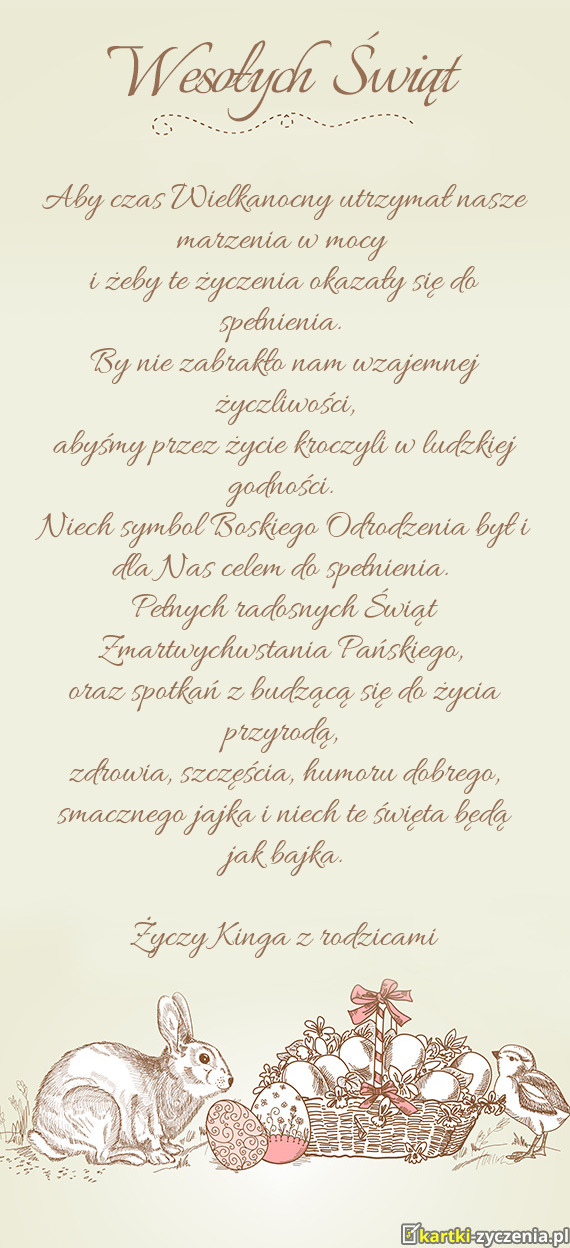 Wesołych Świąt
Aby czas Wielkanocny utrzymał nasze
marzenia w mocy
i żeby te życzenia okazały się do
spełnienia.
By nie zabrakło nam wzajemnej
życzliwości,
abyśmy przez życie kroczyli w ludzkiej
godności.
Niech symbol Boskiego Odrodzenia był i
dla Nas celem do spełnienia.
Pełnych radosnych Świąt
Zmartwychwstania Pańskiego,
oraz spotkań z budzącą się do życia
przyrodą,
zdrowia, szczęścia, humoru dobrego,
smacznego jajka i niech te święta będą
jak bajka.
Życzy Kinga z rodzicami
kartki-zyczenia.pl